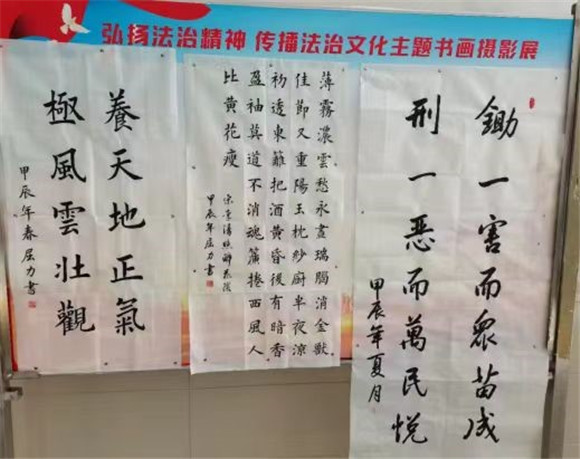 弘扬法治精神 传播法治文化主题书画摄影展
鋤一害而眾苗成
刑一恶而萬民悅
甲辰年夏月
薄霧濃雲愁永晝瑞腦消金獸
佳節又重陽玉枕紗廚半夜涼
初透東籬把酒黃昏後有暗香
盈袖莫道不消魂簾捲西風人
比黃花瘦
宋李清照醉花陰
甲辰年屈力書
養天地正氣
極風雲壯觀
甲辰年春屈力書